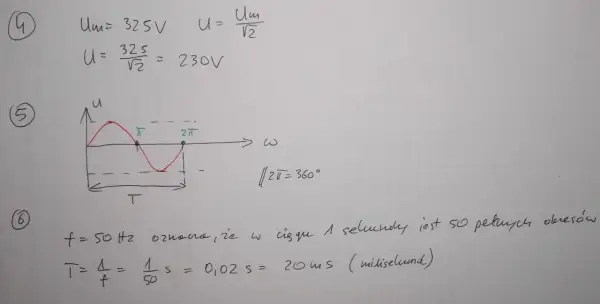 ④ Um = 325V U = Um/√2
U = 325/√2 = 230V
⑤ u
π 2π
ω
//2π = 360°
T
⑥ f = 50 Hz oznacza, że w ciągu 1 sekundy jest 50 pełnych okresów
T = 1/f = 1/50 s = 0,02 s = 20 ms (milisekund)